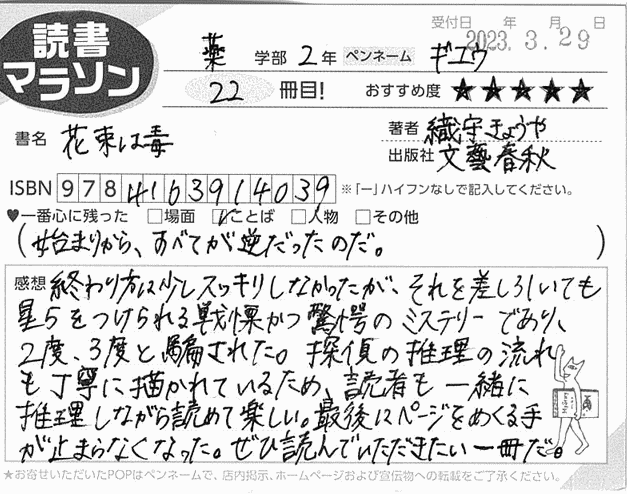 読書
マラソン
受付日 年 月 日
2023.3.29
薬 学部 2年 ペンネーム ギユウ
22 冊目! おすすめ度 ★★★★★
書名 花束は毒
著者 織守きょうや
出版社 文藝春秋
ISBN 9784163914039 ※「ー」ハイフンなしで記入してください。
♥一番心に残った □場面 ☑ことば □人物 □その他
(始まりから、すべてが逆だったのだ。)
感想 終わり方は少しスッキリしなかったが、それを差し引いても
星5をつけられる戦慄かつ驚愕のミステリーであり、
2度、3度と騙された。探偵の推理の流れ
も丁寧に描かれているため、読者も一緒に
推理しながら読めて楽しい。最後はページをめくる手
が止まらなくなった。ぜひ読んでいただきたい一冊だ。
★お寄せいただいたPOPはペンネームで、店内掲示、ホームページおよび宣伝物への転載をご了承ください。